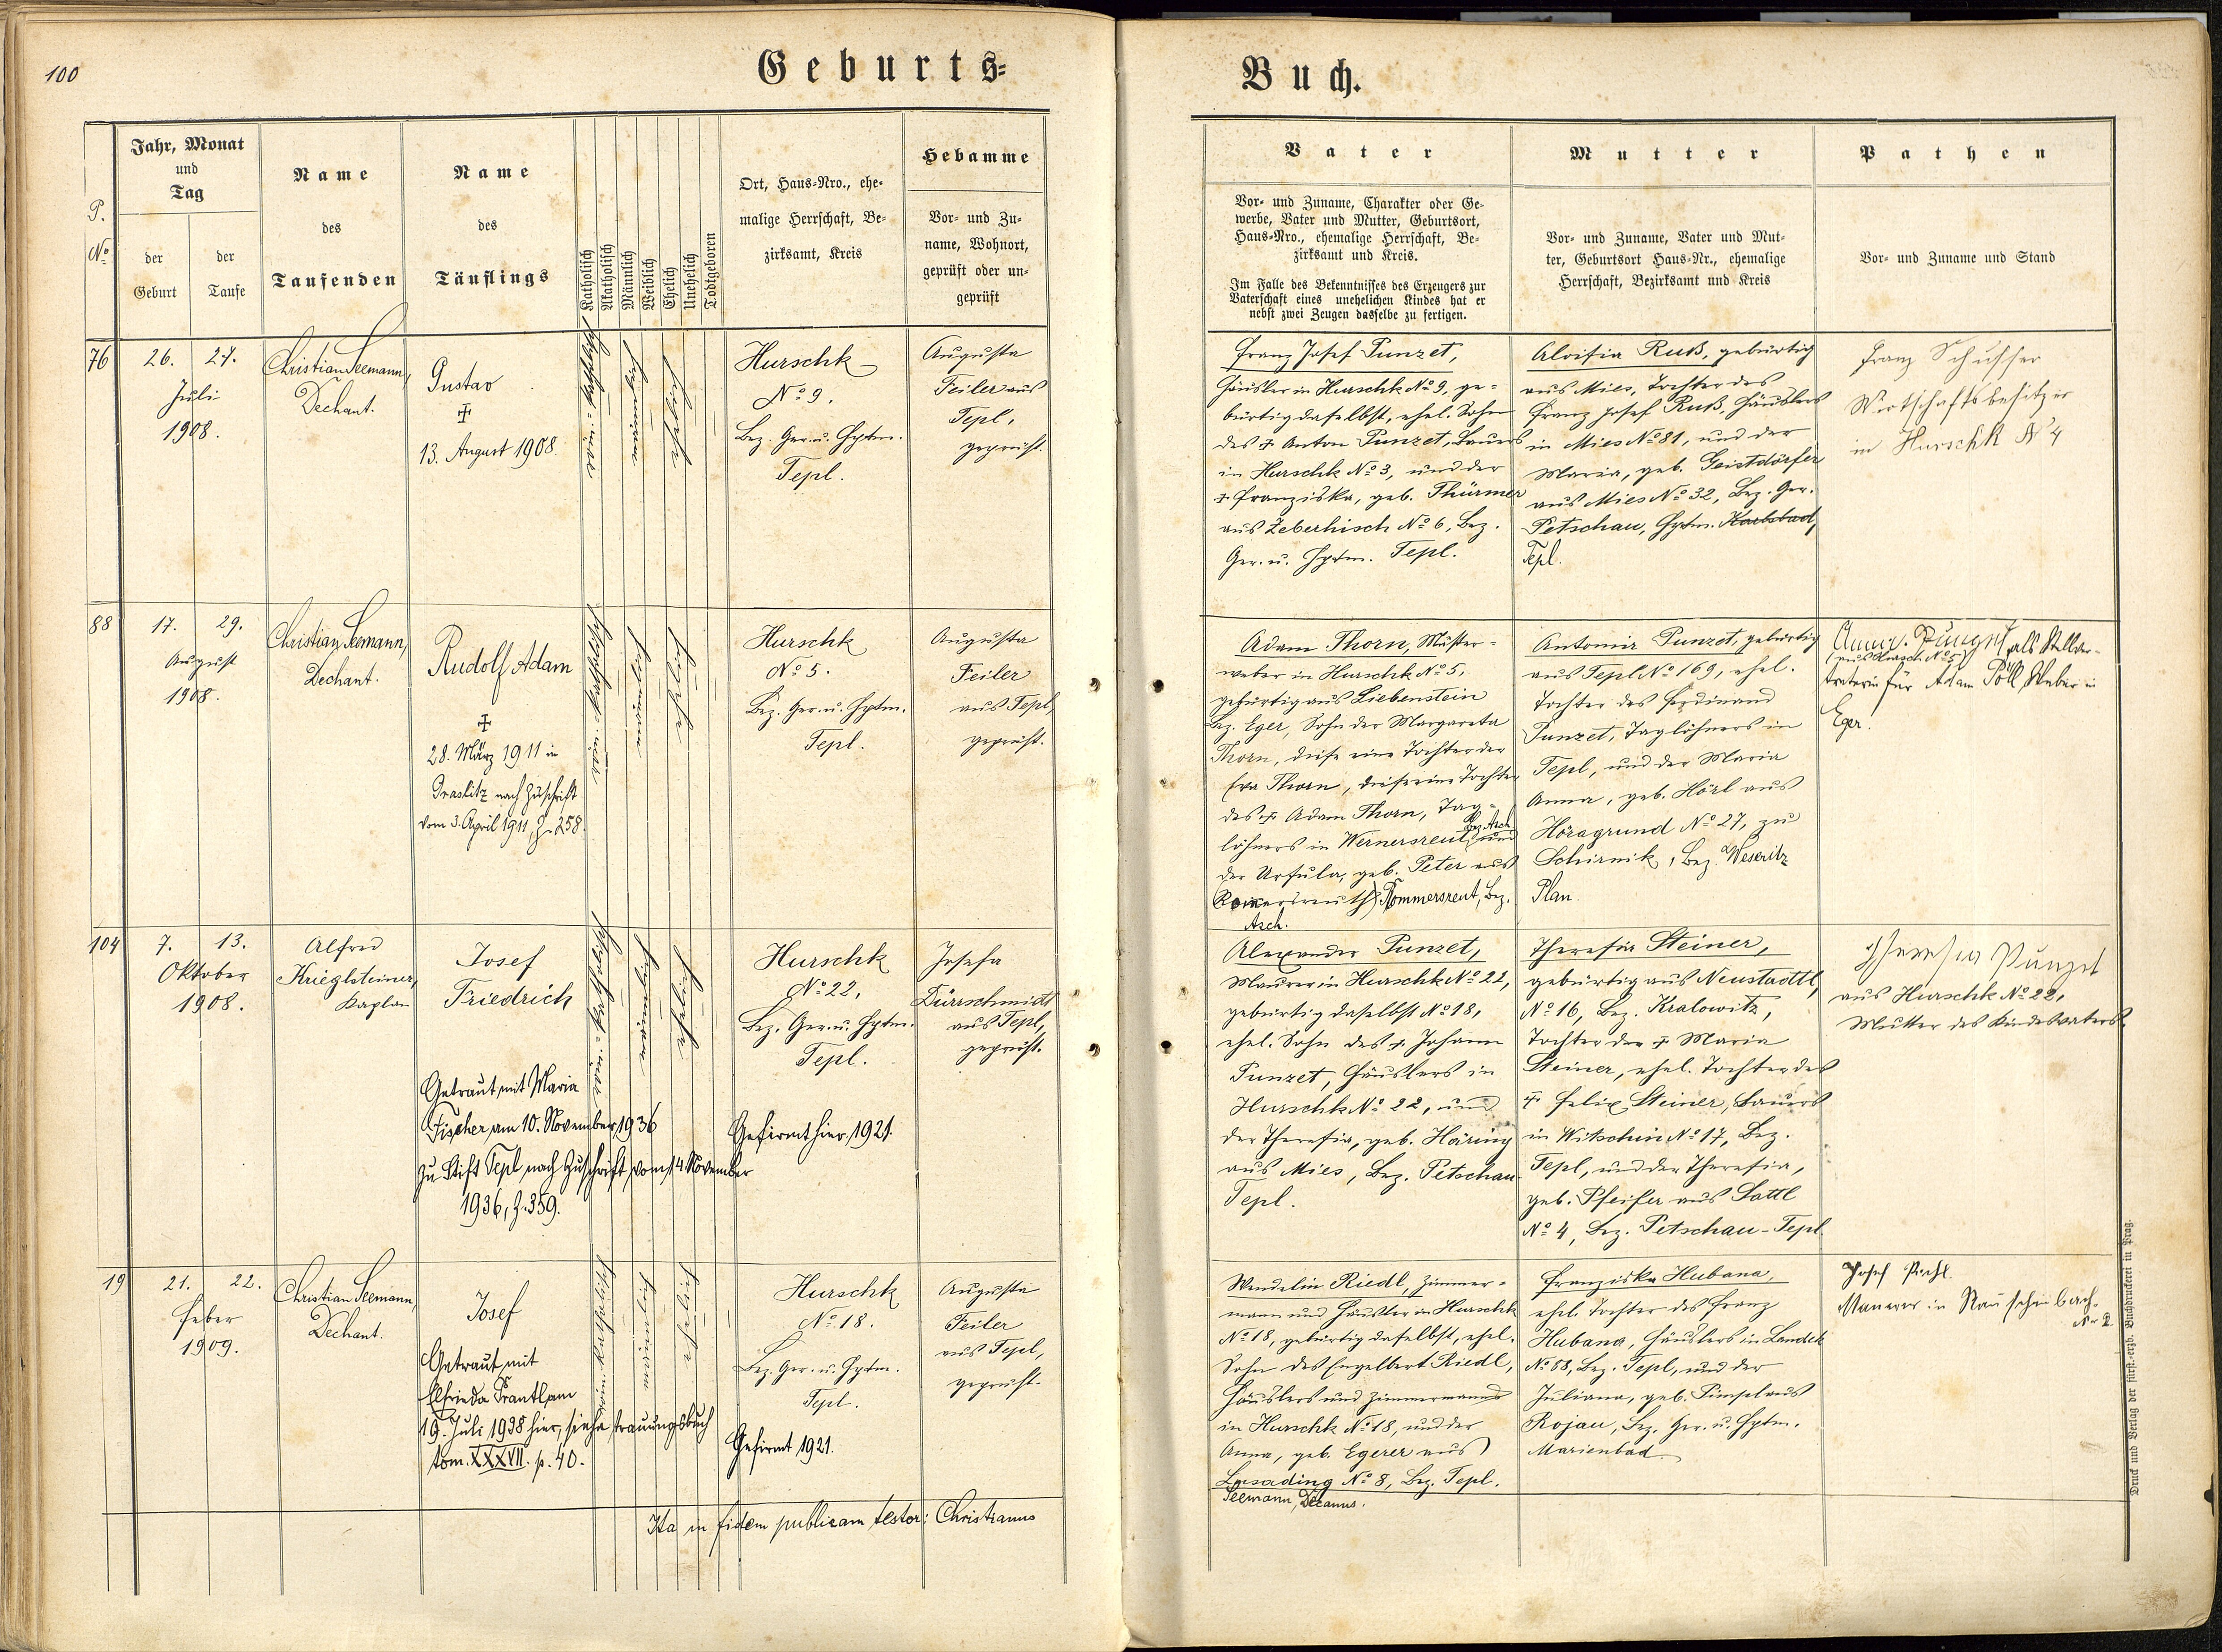 100
Geburts=
P.
No
Jahr, Monat
und
Tag
der
Geburt
der
Taufe
Name
des
Taufenden
Name
des
Täuflings
Katholisch
Akatholisch
Männlich
Weiblich
Ehelich
Unehelich
Todtgeboren
Ort, Haus=Nro., ehe=
malige Herrschaft, Be=
zirksamt, Kreis
Hebamme
Vor= und Zu=
name, Wohnort,
geprüft oder un=
geprüft
76
26. 27.
Juli
1908.
Christian Seemann,
Dechant.
Gustav
✠
13. August 1908.
Hurschk
No 9.
Bez. Ger. u. Hptm.
Tepl.
Augusta
Feiler aus
Tepl,
geprüft.
88
17. 29.
August
1908.
Christian Seemann,
Dechant.
Rudolf Adam
✠
28. März 1911 in
Graslitz nach Zuschrift
vom 3. April 1911, Z. 258.
Hurschk
No 5.
Bez. Ger. u. Hptm.
Tepl.
Augusta
Feiler
aus Tepl,
geprüft.
104
7. 13.
Oktober
1908.
Alfred
Krieglsteiner,
Kaplan
Josef
Friedrich
Getraut mit Maria
Fischer am 10. November 1936
zu Stift Tepl nach Zuschrift vom 14. November
1936, Z. 359.
Hurschk
No 22,
Bez. Ger. u. Hptm.
Tepl.
Gefirmt hier 1921.
Josefa
Dürrschmidt
aus Tepl,
geprüft.
19
21. 22.
Feber
1909.
Christian Seemann,
Dechant.
Josef
Getraut mit
Elfrieda Prantl am
19. Juli 1938 hier, siehe Trauungsbuch
tom. XXXVII. p. 40.
Hurschk
No 18.
Bez. Ger. u. Hptm.
Tepl.
Gefirmt 1921.
Augusta
Feiler
aus Tepl,
geprüft.
Ita in fidem publicam testor: Christianus
Buch.
Vater
Vor= und Zuname, Charakter oder Ge=
werbe, Vater und Mutter, Geburtsort,
Haus=Nro., ehemalige Herrschaft, Be=
zirksamt und Kreis.
Im Falle des Bekenntnisses des Erzeugers zur
Vaterschaft eines unehelichen Kindes hat er
nebst zwei Zeugen dasselbe zu fertigen.
Mutter
Vor= und Zuname, Vater und Mut=
ter, Geburtsort Haus=Nr., ehemalige
Herrschaft, Bezirksamt und Kreis
Pathen
Vor= und Zuname und Stand
Franz Josef Punzet,
Häusler in Hurschk No 9, ge=
bürtig daselbst, ehel. Sohn
des ✠ Anton Punzet, Bauers
in Hurschk No 3, und der
✠ Franziska, geb. Thürmer
aus Zeberhisch No 6, Bez.
Ger. u. Hptm. Tepl.
Aloisia Ruß, gebürtig
aus Mies, Tochter des
Franz Josef Ruß, Häuslers
in Mies No 81, und der
Maria, geb. Geistdörfer
aus Mies No 32, Bez. Ger.
Petschau, Hptm. Karlsbad,
Tepl.
Franz Schusser
Wirtschaftsbesitzer
in Hurschk No 4
Adam Thorn, Muster=
weber in Hurschk No 5,
gebürtig aus Liebenstein
Bez. Eger, Sohn der Margareta
Thorn, diese eine Tochter der
Eva Thorn, diese eine Tochter
des ✠ Adam Thorn, Tag=
löhners in Wernersreut, Bez. Asch und
der Ursula, geb. Peter aus
Romersreuth) Rommersreut, Bez.
Asch.
Antonia Punzet, gebürtig
aus Tepl No 169, ehel.
Tochter des Ferdinand
Punzet, Taglöhners in
Tepl, und der Maria
Anna, geb. Hörl aus
Höragrund No 27, zu
Schirnik, Bez. Weseritz
Plan.
Anna Punzet, als Stellver=
(aus Hursch. No 5)
treterin für Adam Pöll, Weber in
Eger.
Alexander Punzet,
Maurer in Hurschk No 22,
gebürtig daselbst No 18,
ehel. Sohn des ✠ Johann
Punzet, Häuslers in
Hurschk No 22, und
der Theresia, geb. Häring
aus Mies, Bez. Petschau
Tepl.
Theresia Steiner,
gebürtig aus Neustadtl,
No 16, Bez. Kralowitz,
Tochter der ✠ Maria
Steiner, ehel. Tochter des
✠ Felix Steiner, Bauers
in Witschin No 17, Bez.
Tepl, und der Theresia,
geb. Pfeifer aus Sattl
No 4, Bez. Petschau-Tepl.
Theresia Punzet
aus Hurschk No 22,
Mutter des Kindesvaters.
Wendelin Riedl, Zimmer=
mann und Häusler in Hurschk
No 18, gebürtig daselbst, ehel.
Sohn des Engelbert Riedl,
Häuslers und Zimmermanns
in Hurschk No 18, und der
Anna, geb. Egerer aus
Lusading No 8, Bez. Tepl.
Seemann, Decanus.
Franziska Hubana,
ehel. Tochter des Franz
Hubana, Häuslers in Landek
No 88, Bez. Tepl, und der
Juliana, geb. Pimpl aus
Rojau, Bez. Ger. u. Hptm.
Marienbad.
Josef
Maurer in Rauschenbach
Nr 2
Druck und Verlag der fürst.-erzb. Buchdruckerei in Prag.